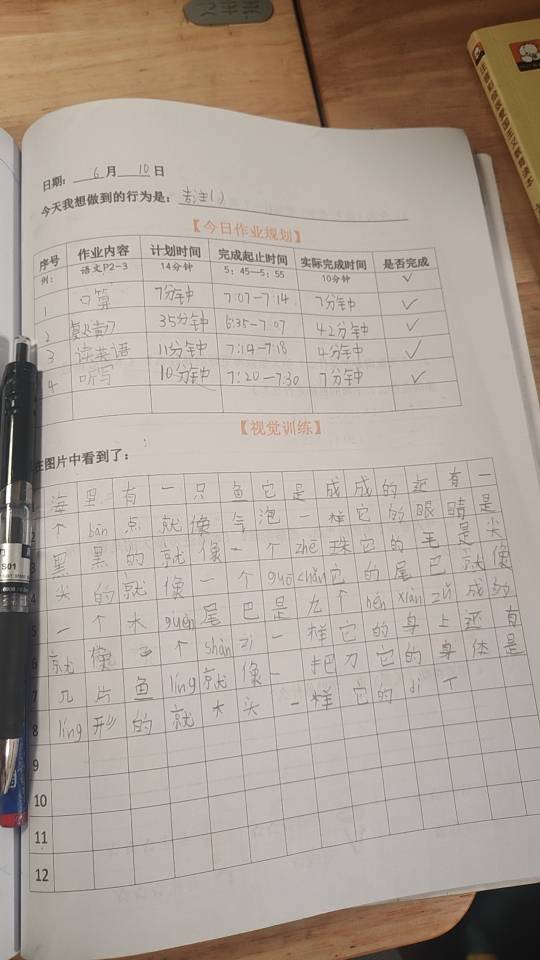 日期: 6 月 10 日
今天我想做到的行为是: 专注()
【今日作业规划】
序号 作业内容 计划时间 完成起止时间 实际完成时间 是否完成
例: 语文P2-3 14分钟 5:45—5:55 10分钟 ✓
1 口算 7分钟 7:07-7:14 7分钟 ✓
2 35分钟 6:35-7:07 42分钟 ✓
3 读英语 11分钟 7:14-7:18 4分钟 ✓
4 听写 10分钟 7:20-7:30 7分钟 ✓
【视觉训练】
在图片中看到了:
海里有一只鱼它是成成的还有一
2 个bān点就像气泡一样它的眼睛是
3 黑黑的就像一个zhē珠它的毛是尖
4 尖的就像一个guō chǎn它的尾巴就像
5 一个大guēn尾巴是九个nén xiàn zǔ成的
6 就像个shàn zi一样它的身上还有
7 几片鱼líng就像一把刀它的身体是
8 líng形的就大头一样它的di下
9
10
11
12
S01